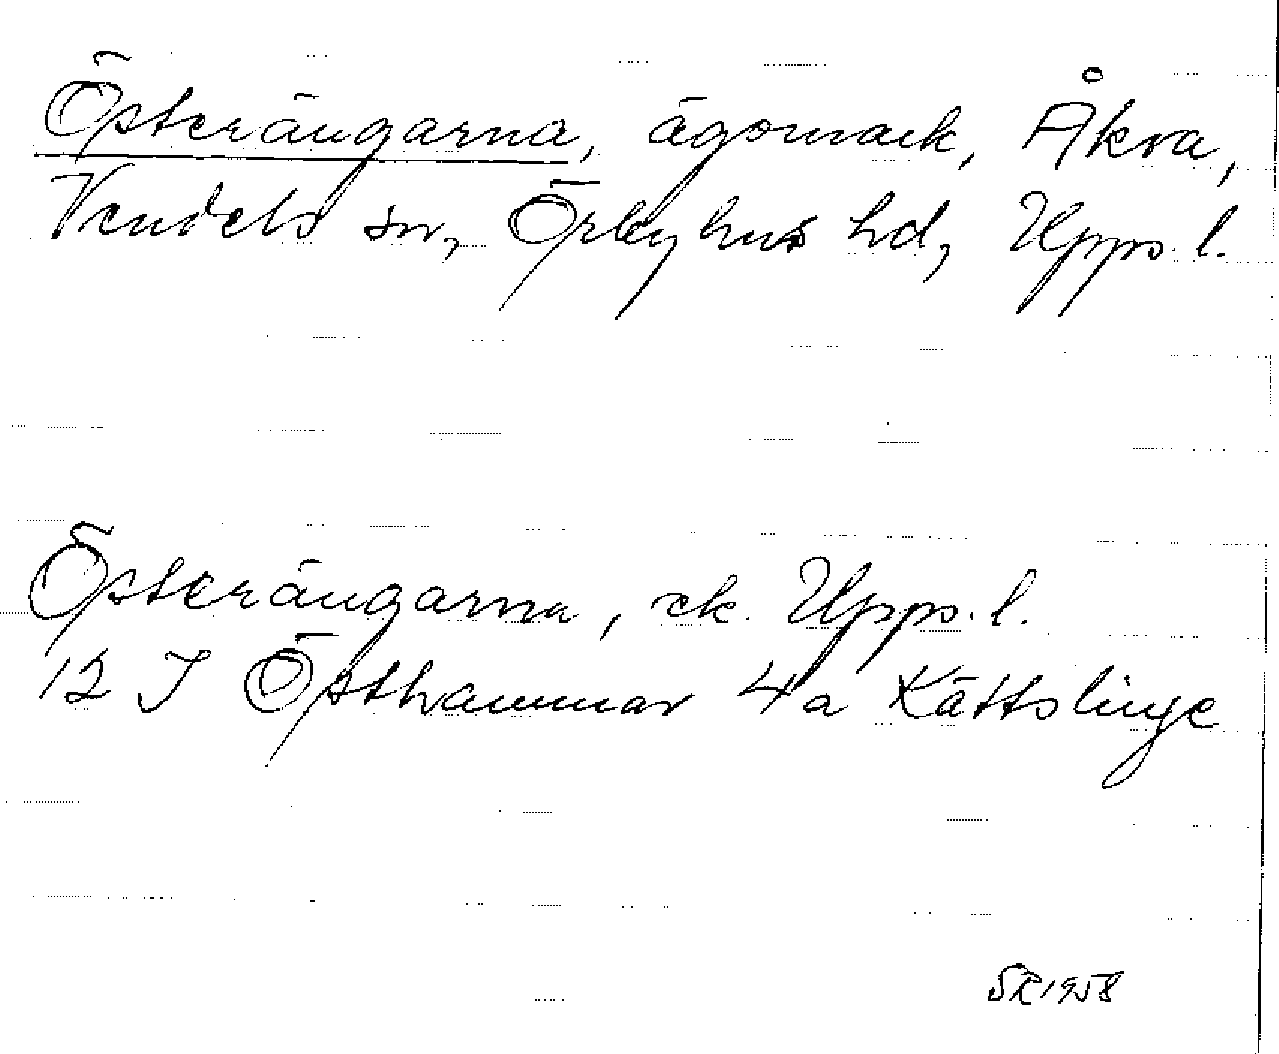 Österängarna, ägomark, Åkra,
Vendels sn, Örbyhus hd, Upps. l.
Österängarna, ek. Upps. l.
12 I Östhammar 4 a Kättslinge
SR 1958